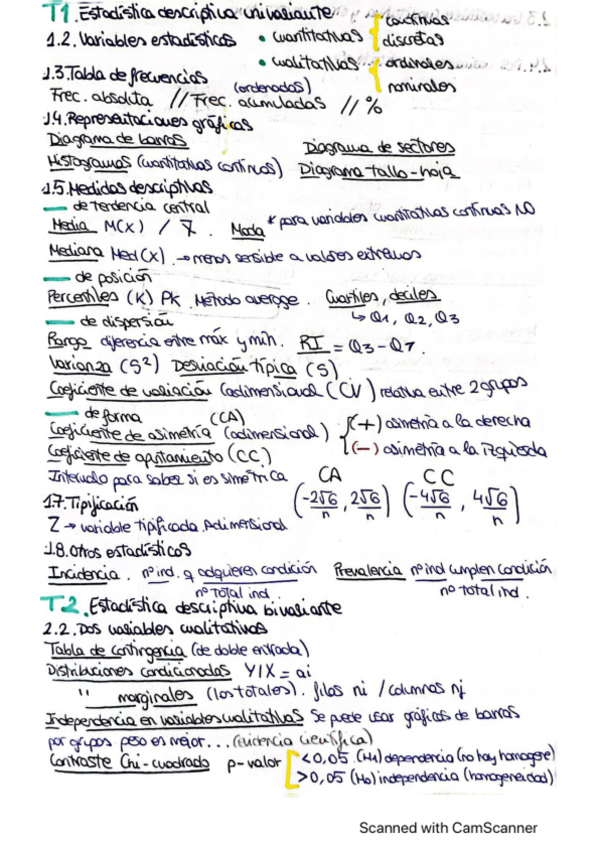 T1. Estadística descriptiva univariante
continuas
1.2. Variables estadísticas • cuantitativas discretas
• cualitativas ordinales
nominales
1.3. Tabla de frecuencias (ordenados)
Frec. absoluta // Frec. acumuladas // %
1.4. Representaciones gráficas
Diagrama de barras Diagrama de sectores
Histogramas (cuantitativas continuas) Diagrama tallo-hoja
1.5. Medidas descriptivas
— de tendencia central
Media M(X) / X̄. Moda * para variables cuantitativas continuas NO
Mediana Med(X). → menos sensible a valores extremos
— de posición
Percentiles (K) PK. Método average. Cuartiles, deciles
↳ Q1, Q2, Q3
— de dispersión
Rango diferencia entre máx y mín. RI = Q3 - Q1.
Varianza (S²) Desviación típica (S)
Coeficiente de variación (adimensional) (CV) relativa entre 2 grupos
— de forma (CA)
Coeficiente de asimetría (adimensional) (+) asimetría a la derecha
Coeficiente de apuntamiento (CC) (-) asimetría a la izquierda
Intervalo para saber si es simétrica CA CC
1.7. Tipificación (-2√6/n, 2√6/n) (-4√6/n, 4√6/n)
Z → variable tipificada. Adimensional
1.8. Otros estadísticos
Incidencia. nº ind. q adquieren condición / nº total ind. Prevalencia nº ind cumplen condición / nº total ind.
T2. Estadística descriptiva bivariante
2.2. Dos variables cualitativas
Tabla de contingencia (de doble entrada)
Distribuciones condicionadas Y/X = ai
" marginales (los totales). filas ni / columnas nj
Independencia en variables cualitativas Se puede usar gráficos de barras
por grupos peso es mejor... (evidencia científica)
Contraste Chi-cuadrado p-valor <0,05 (H1) dependencia (no hay homogene)
>0,05 (H0) independencia (homogeneidad)
Scanned with CamScanner